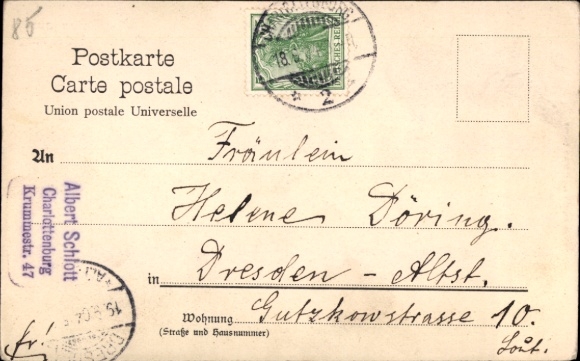 85
Postkarte
Carte postale
Union postale Universelle
An Fräulein
Helene Döring.
in Dresden - Altst.
Wohnung Gutzkowstrasse 10.
(Straße und Hausnummer)
fr!
Albert Schlott
Charlottenburg
Krummestr. 47
2